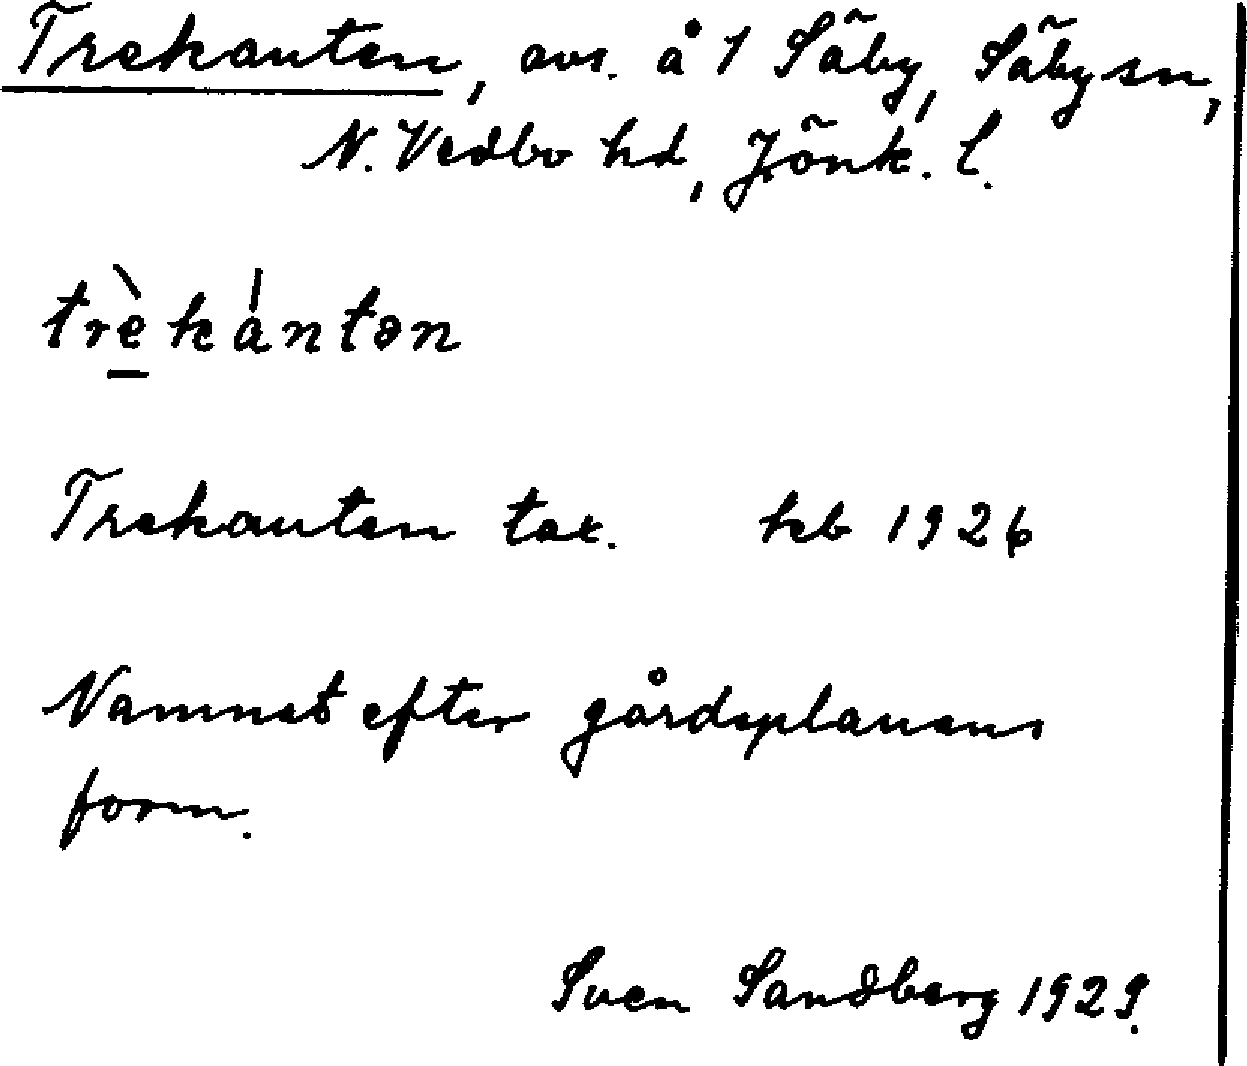 Trekanten, avs. å 1 Säby, Säby sn,
N. Vedbo hd, Jönk. l.
trè̱kántən
Trekanten tax. kb 1926
Namnet efter gårdsplanens
form.
Sven Sandberg 1929.